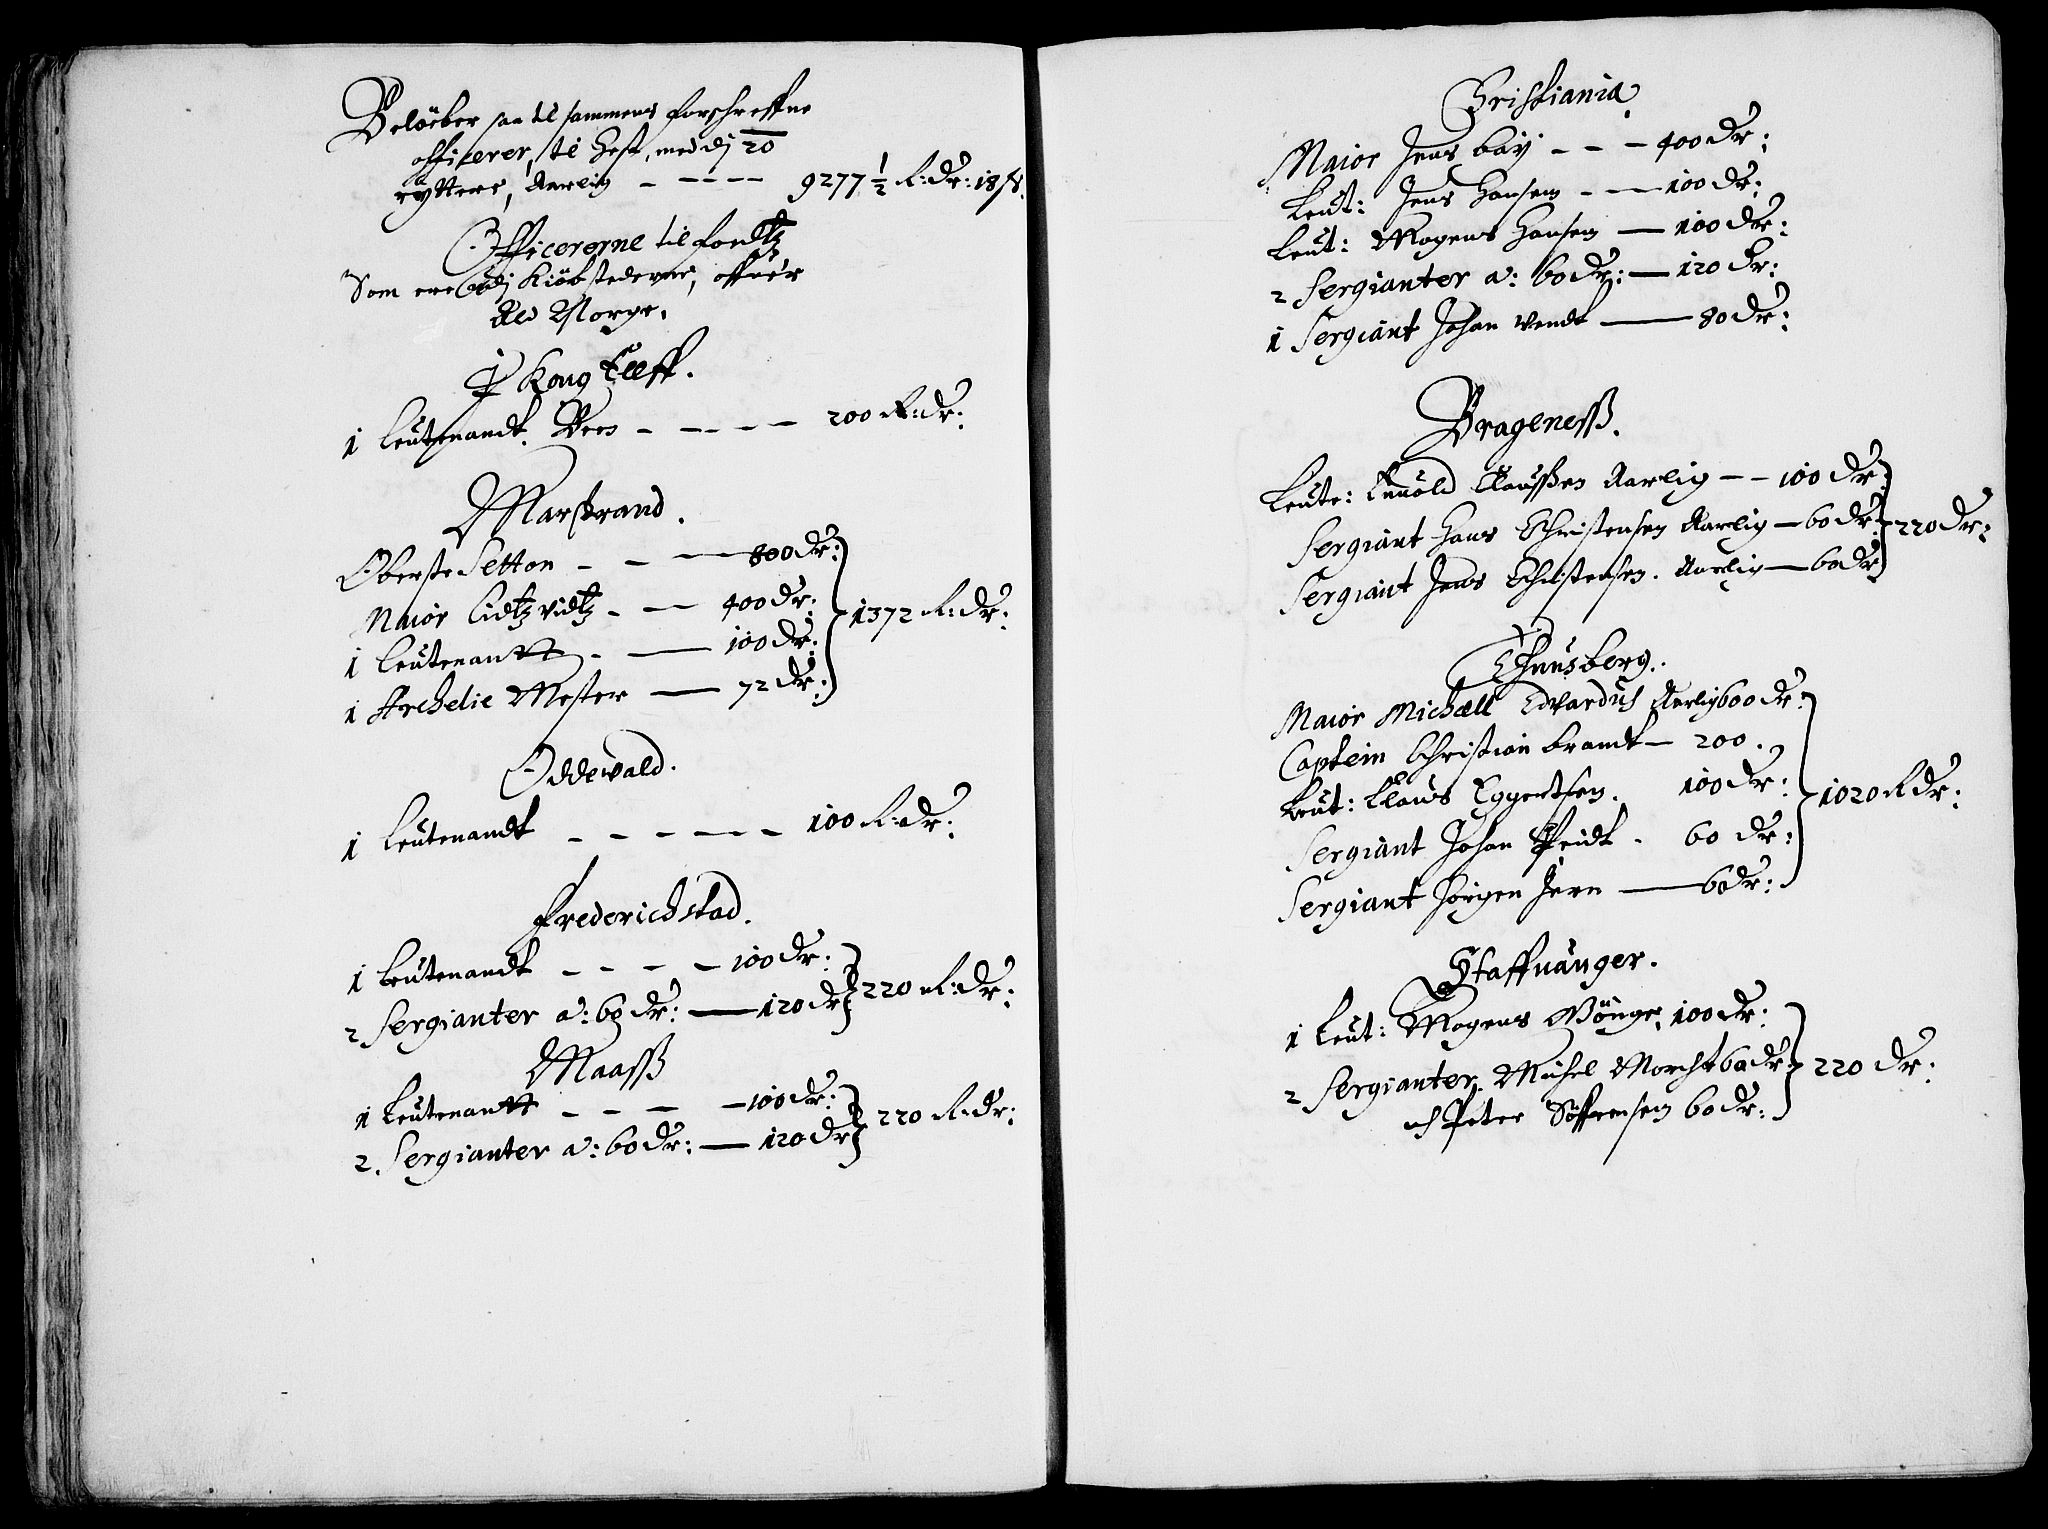 Belöeber saa til sammens forschreffne
officerer, til Hest, med dj 20
ryttere, Aarlig - - - - 9277 1/2 R: dr: 18 s.
Officererne til fondtz
Som ere udj Kiöbstederne, offuer
Ald Norge.
J Kong Elff.
1 Leutenandt - - - - 200 R: dr:
Marstrand.
Oberste Setton - - - 800 dr:
Maior Lidtzvidtz - - 400 dr:
1 Leutenantt - - 100 dr: 1372 R: dr:
1 Archelie Mester - 72 dr:
Oddewald.
1 Leutenandt - - - - - - 100 R: dr:
Frederichstad.
1 Leutenandt - - - - 100 dr:
2 Sergianter a: 60 dr: - 120 dr 220 R: dr:
Maass
1 Leutenantt - - - - 100 dr:
2. Sergianter a: 60 dr: - 120 dr 220 R: dr:
Cristiania.
Maior Jens bäy - - - 400 dr:
Leut: Jens Hansen - - 100 dr:
Leut: Mogens Hansen - 100 dr:
2 Sergianter a: 60 dr: - 120 dr:
1 Sergiant Johan Wendt - 80 dr:
Brageness.
Leute: Claussen Aarlig - - 100 dr:
Sergiant Hans Christensen Aarlig - 60 dr: 220 dr:
Sergiant Jens Christensen. Aarlig - 60 dr
Thunsberg.
Maior Michæll Edvardus Aarlig 600 dr:
Captein Christian brandt - 200.
Leut: Claus Eggertsen. 100 dr: 1020 R dr:
Sergiant Johan - 60 dr:
Sergiant Jörgen Jern - 60 dr:
Staffuanger.
1 Leut: Mogens Mönge. 100 dr:
2 Sergianter. Michel Morcht 60 dr 220 dr:
och Peter Söffrensen 60 dr: